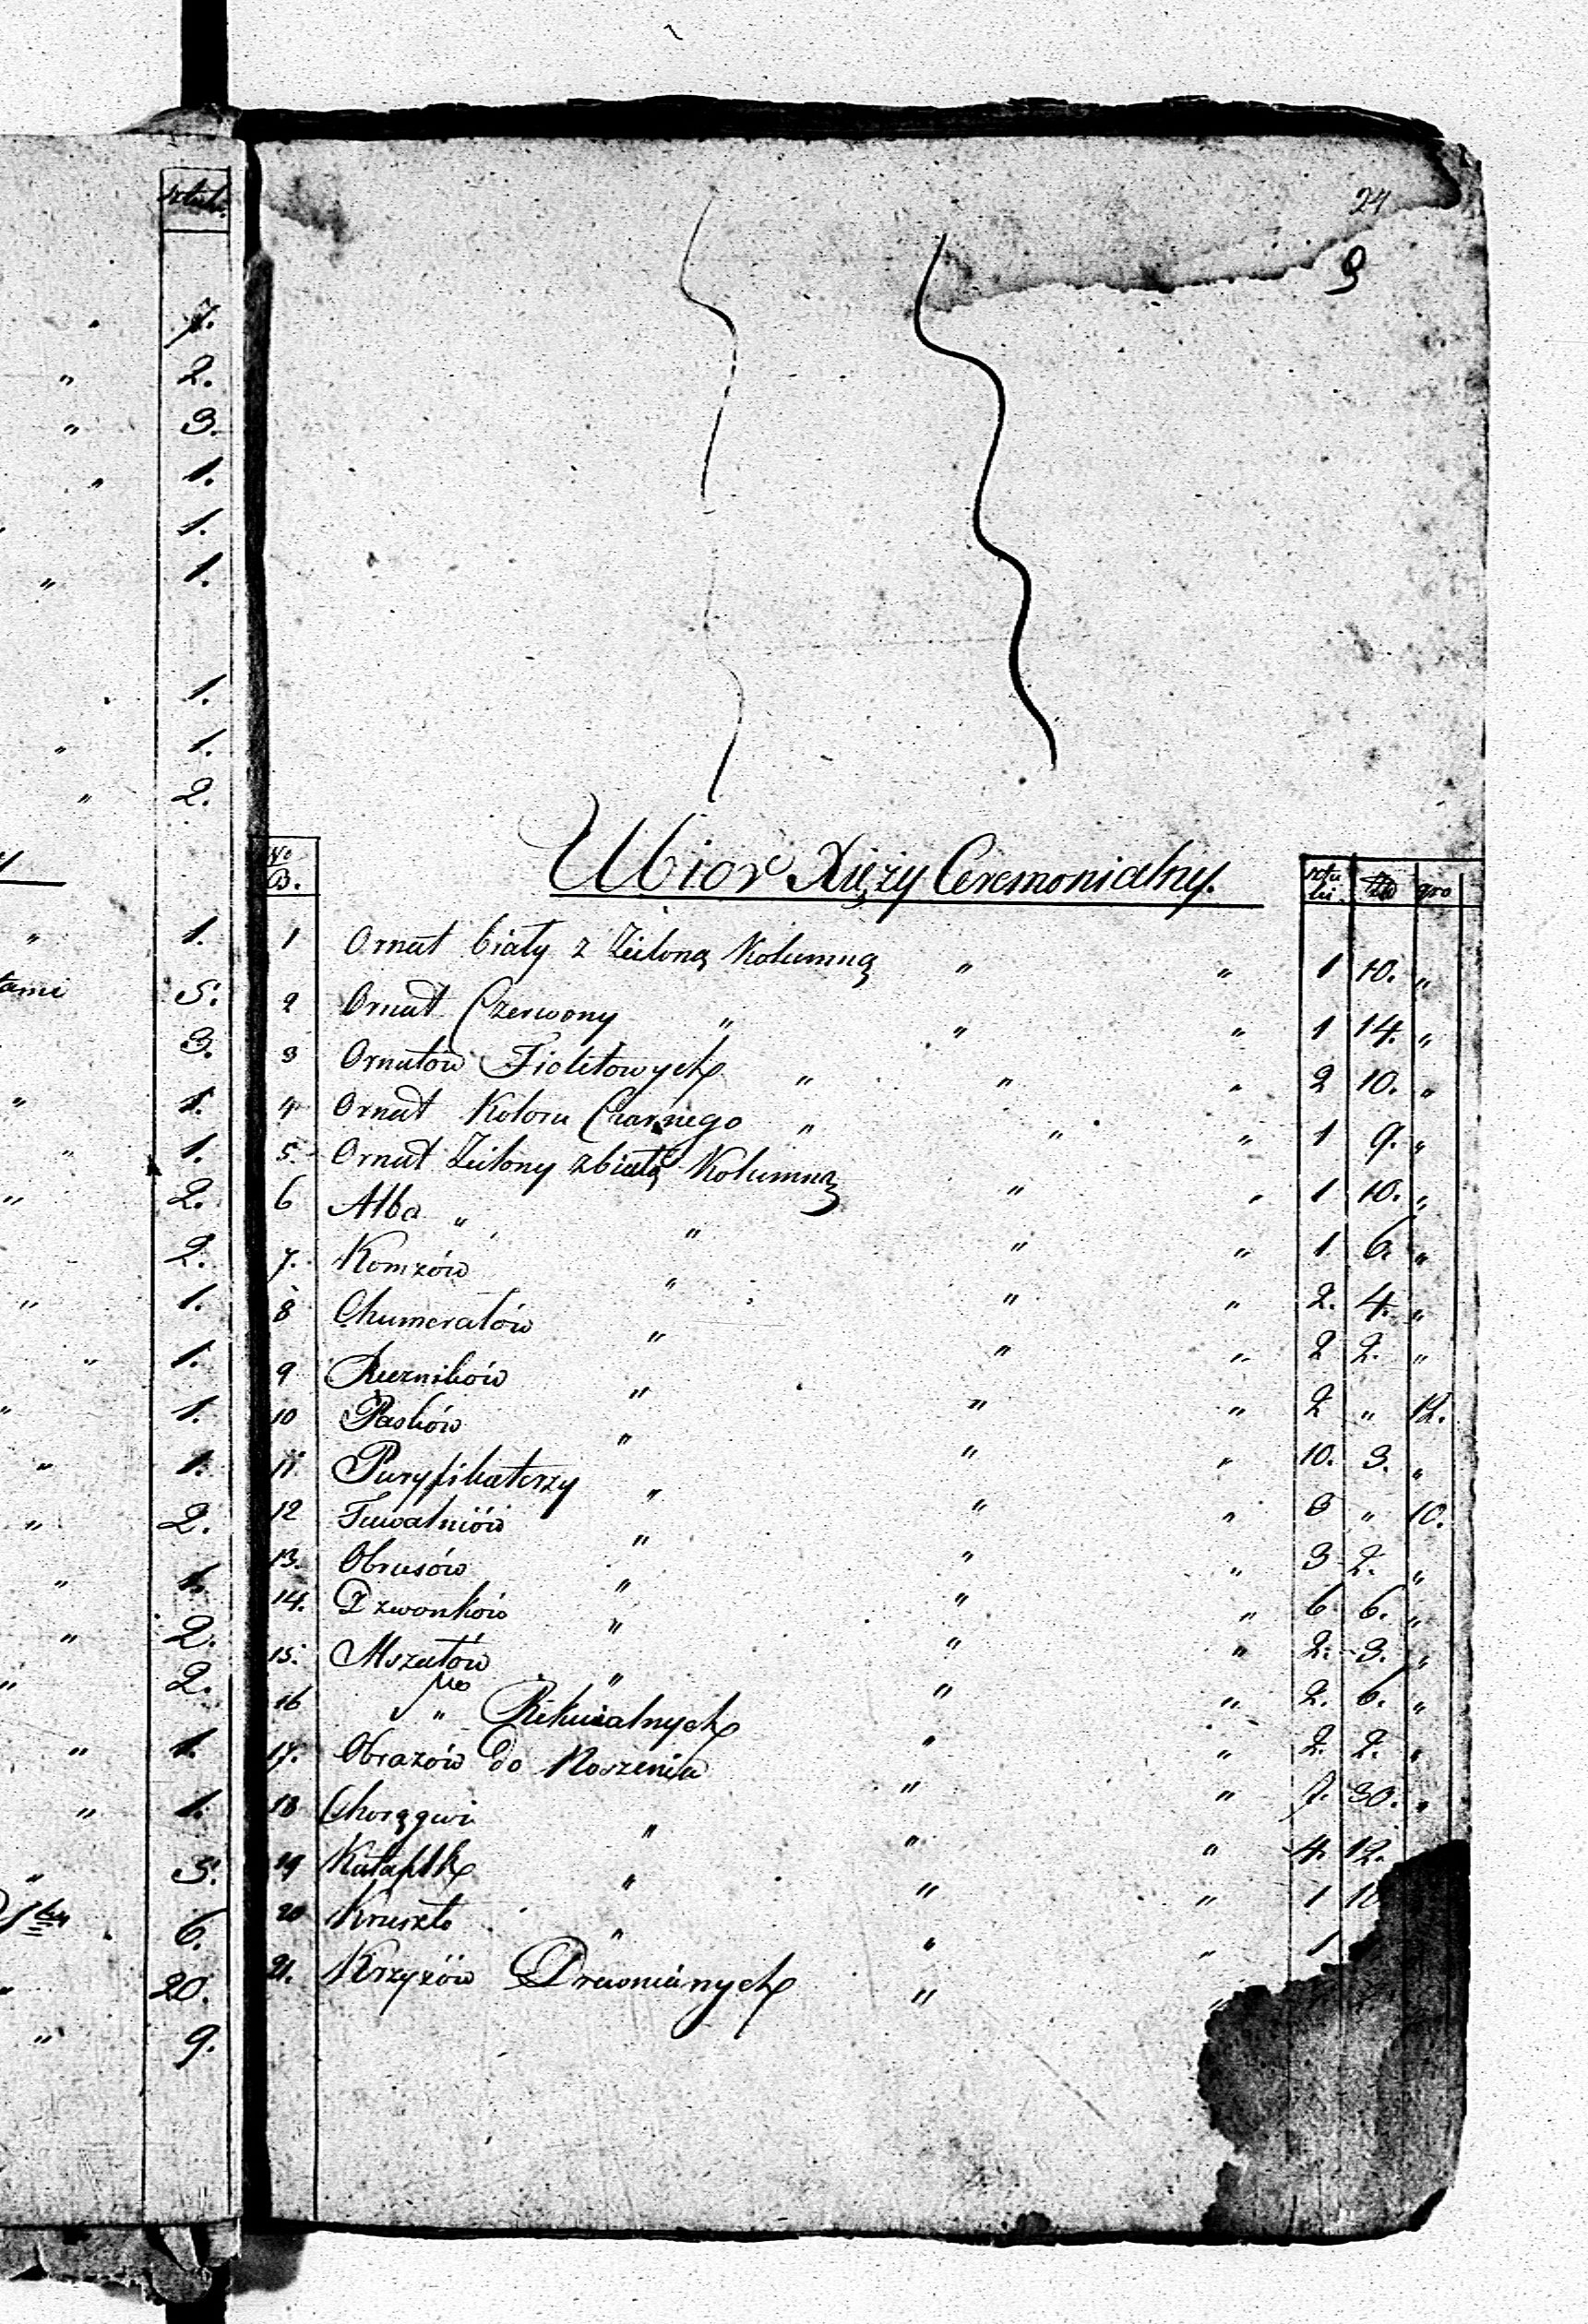 sztuki
7.
" 2.
" 3.
" 1.
1.
" 1.
1.
" 1.
" 2.
" 1.
tami 5.
3.
" 1.
" 1.
" 2.
2.
" 1.
" 1.
" 1.
" 1.
" 2.
" 1.
" 2.
" 2.
" 1.
" 1.
" 5.
6.
" 20.
" 9.
24
9
Ubior Xięży Ceremonialny.
No B. sztuki Złp gro
1 Ornat biały z Zieloną Kolumną " " 1 10. "
2 Ornat Czerwony " " " 1 14. "
3 Ornatów Fioletowych " " " 2 10. "
4 Ornat Koloru Czarnego " " " 1 9. "
5. Ornat Zielony z białą Kolumną " " 1 10. "
6 Alba " " " " 1 6. "
7. Komzów " " " 2. 4. "
8 Chumerałów " " " 2 2. "
9 Ręczników " " " 2 " 12.
10 Pasków " " " 10. 3. "
11. Puryfikaterzy " " " 6 " 10.
12 Tuwalniów " " " 3 2. "
13. Obrusów " " " 6 6. "
14. Dzwonków " " " 2. 3. "
15. Mszałów " " " 2. 6. "
16 " Rekwialnych " " 2. 2. "
17. Obrazów do Noszenia " " 7. 30. "
18 Chorągwi " " " 4. 12.
19 Katafalk " " " 1 10
20 Krzesło " " " 1
21. Krzyżów Drewnianych " "